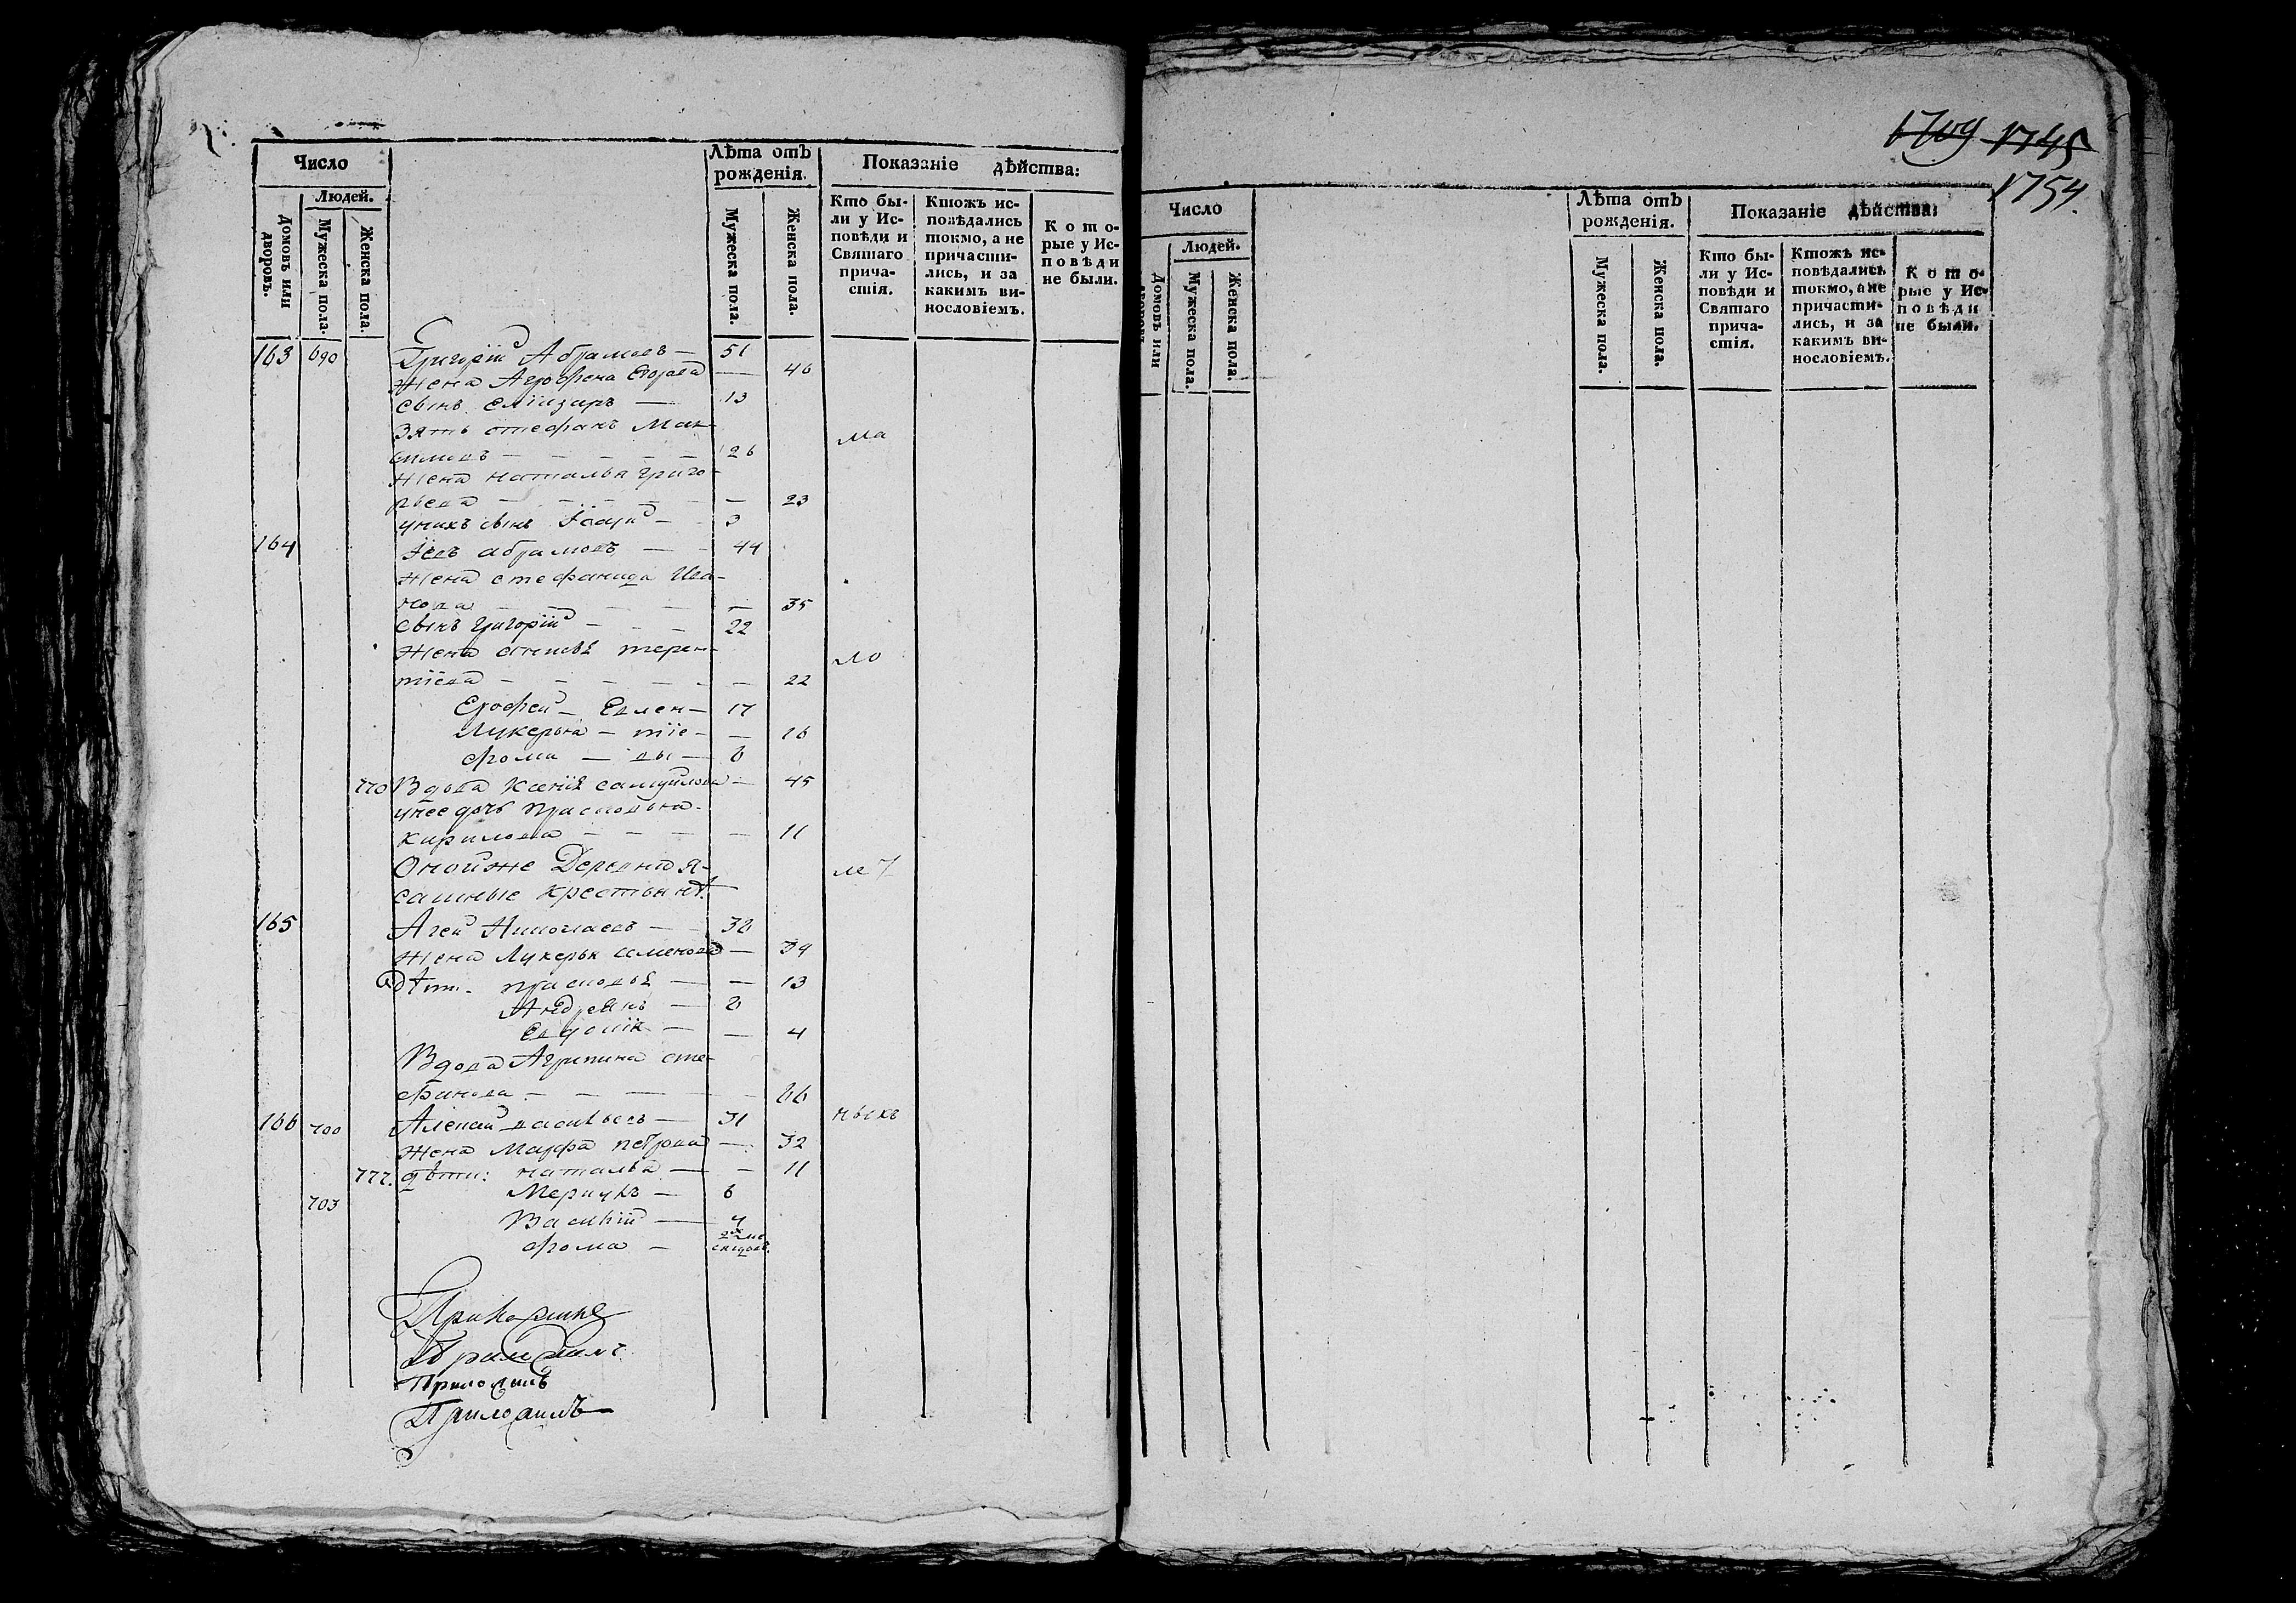 Число
Людей.
Домовъ или дворовъ.
Мужеска пола.
Женска пола.
Лѣта отъ рожденія.
Мужеска пола.
Женска пола.
Показаніе дѣйства:
Кто бы-
ли у Ис-
повѣди и
Святаго
прича-
стія.
Ктожъ ис-
повѣдались
токмо, а не
причасти-
лись, и за
какимъ ви-
нословіемъ.
Кото-
рые у Ис-
повѣди
не были.
163 690 Григорій Абрамовъ — 51
Жена Агрофена Егорова — 46
сынъ Еліизаръ — 13
Зять стефанъ Мак-
симовъ — 26
Жена наталья григо-
рьева — 23
уникъ сынъ — 3
164 Іевъ абрамовъ — 44
Жена стефанида Ива-
нова — 35
сынъ григорій — 22
Жена терен-
тіева — 22
Ерофей — Евлен — 17
Лукерья — тіе — 16
фома — вы — 8
770 Вдова Ксенія самуилова — 45
унее дочь прасковья
кирилова — 11
Оной же Деревни Я-
сашные крестьянѣ.
165 Агей Николаевъ — 38
Жена Лукерья семенова — 39
дѣти. прасковья — 13
Андреянъ — 8
Евдокія — 4
Вдова Агрипина сте-
фанова — 66
166 700 Алексей васильевъ — 31
Жена Марфа петрова — 32
777. дѣти: наталья — 11
703 Меркулъ — 6
Василій — 4
фома —
ма
ло
ле
ныхъ
1709 1745
1754.
Число
Людей.
Домовъ или дворовъ
Мужеска пола.
Женска пола.
Лѣта отъ рожденія.
Мужеска пола.
Женска пола.
Показаніе дѣйства:
Кто бы-
ли у Ис-
повѣди и
Святаго
прича-
стія.
Ктожъ ис-
повѣдались
токмо, а не
причасти-
лись, и за
какимъ ви-
нословіемъ.
Кото-
рые у Ис-
повѣди
не были.